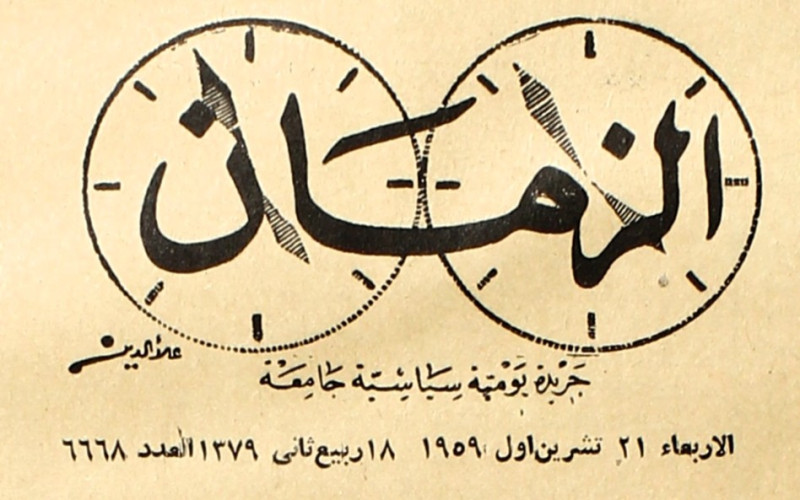 الزمان
علاءالدين
جَريْدة يَوْميّة سِيَاسْيّة جَامِعَة
الاربعاء ٢١ تشرين اول ١٩٥٩ ١٨ ربيع ثانى ١٣٧٩ العدد ٦٦٦٨